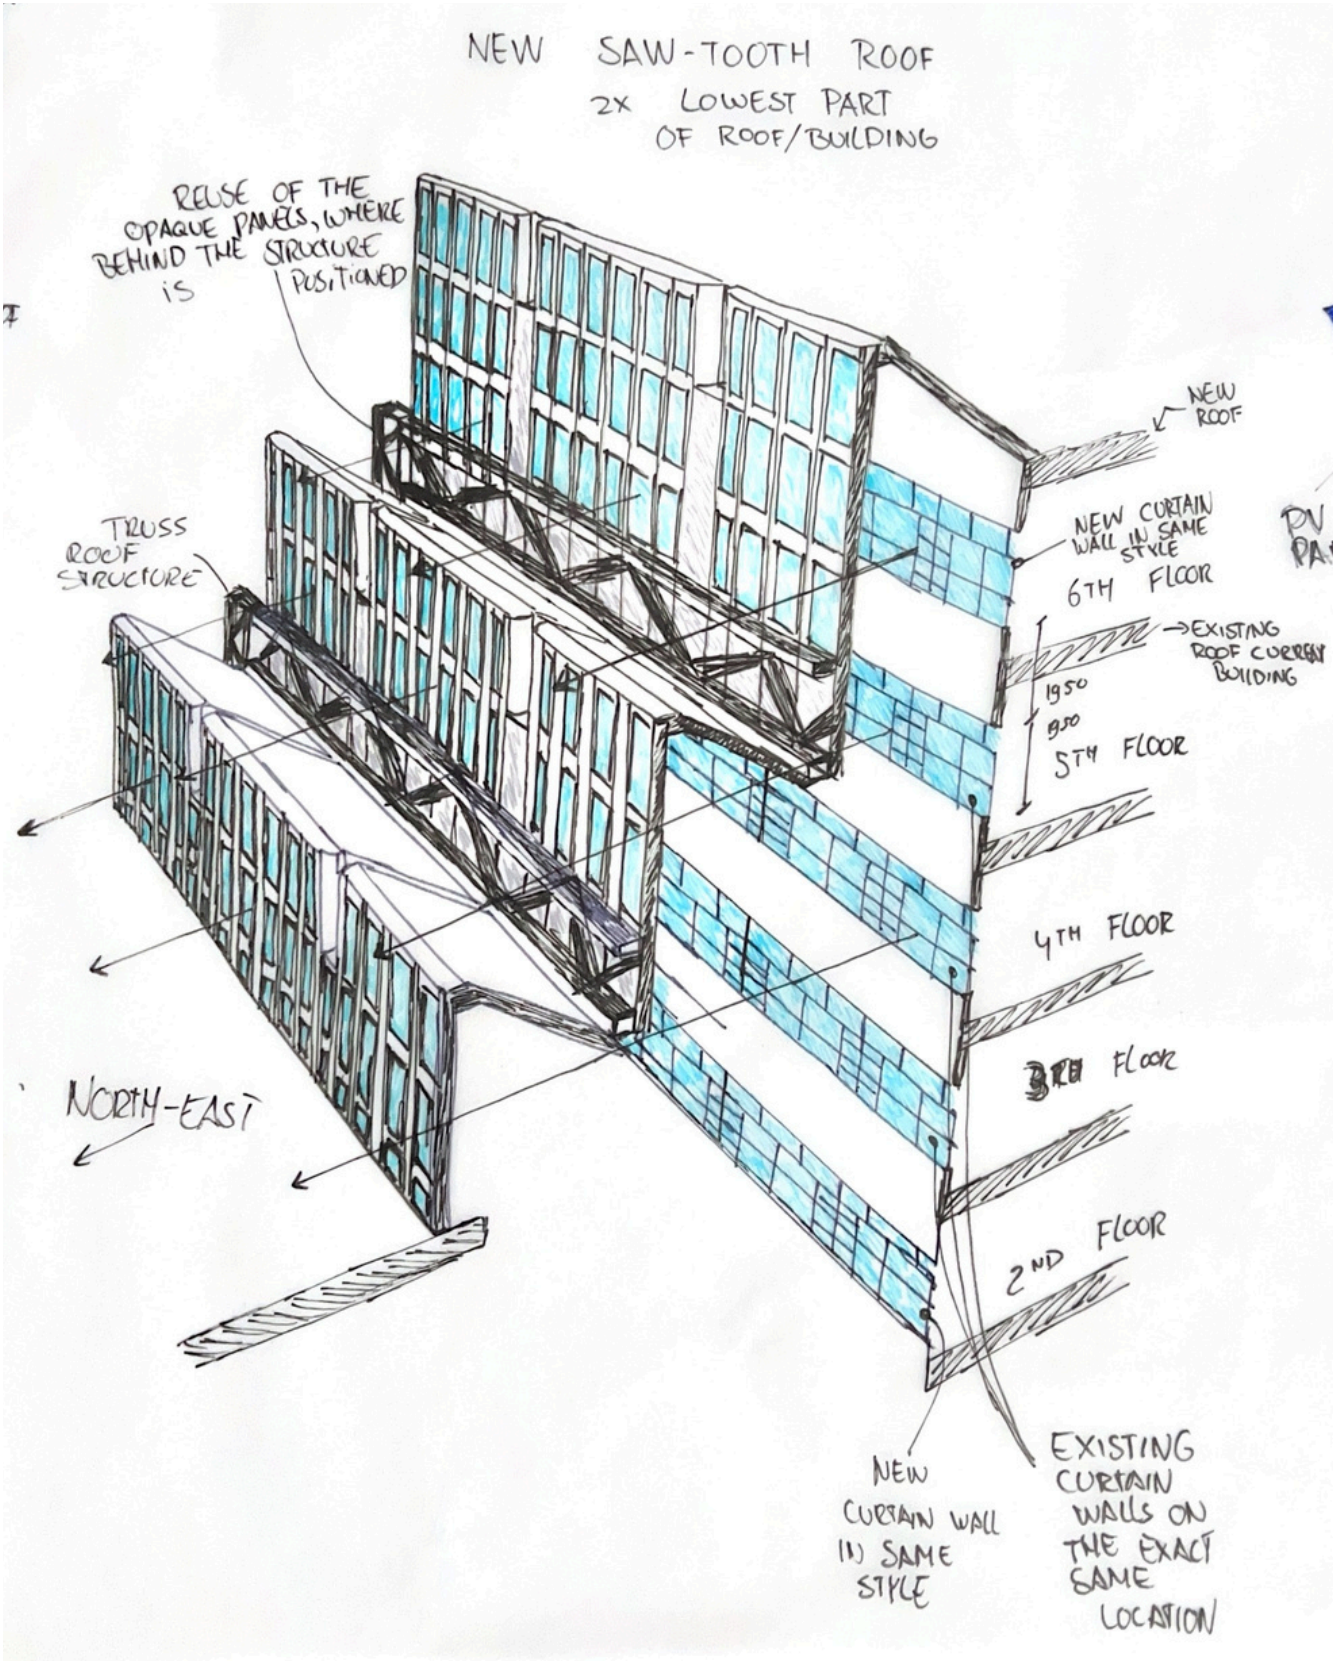 NEW SAW-TOOTH ROOF
2X LOWEST PART
OF ROOF/BUILDING
REUSE OF THE
OPAQUE PANELS, WHERE
BEHIND THE STRUCTURE
IS POSITIONED
TRUSS
ROOF
STRUCTURE
NEW
ROOF
NEW CURTAIN
WALL IN SAME
STYLE
6TH FLOOR
PV
EXISTING
ROOF CURRENT
BUILDING
1950
950
5TH FLOOR
4TH FLOOR
3RD FLOOR
NORTH-EAST
2ND FLOOR
NEW
CURTAIN WALL
IN SAME
STYLE
EXISTING
CURTAIN
WALLS ON
THE EXACT
SAME
LOCATION